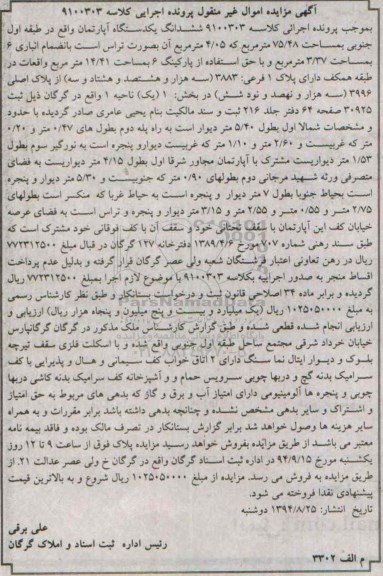 آگهی مزایده اموال غیر منقول پرونده اجرایی کلاسه ۹۱۰۰۳۰۳
بموجب پرونده اجرائی کلاسه ۹۱۰۰۳۰۳ ششدانگ یکدستگاه آپارتمان واقع در طبقه اول
جنوبی بمساحت ۷۵/۴۸ مترمربع که ۴/۰۵ مترمربع آن بصورت تراس است بانضمام انباری ۶
بمساحت ۳/۳۷ مترمربع و با حق استفاده از پارکینگ ۶ بمساحت ۱۴/۴۱ متر مربع واقعات در
طبقه همکف دارای پلاک ۱ فرعی: ۳۸۸۳ (سه هزار و هشتصد و هشتاد و سه) از پلاک اصلی
۳۹۹۶ (سه هزار و نهصد و نود شش) در بخش: ۱ (یک) ناحیه ۱ واقع در گرگان ذیل ثبت
۳۰۹۲۵ صفحه ۶۴ دفتر جلد ۲۱۶ ثبت و سند مالکیت بنام یحیی عامری صادر گردیده با حدود
و مشخصات شمالا اول بطول ۵/۴۰ متر دیوار است به راه پله دوم بطول های ۰/۴۷ متر و ۰/۲۰
متر که غربیست و ۲/۶۰ متر و ۱/۱۰ متر که غربیست دیوارو پنجره است به نورگیر سوم بطول
۱/۵۳ متر دیواریست مشترک با آپارتمان مجاور شرقا اول بطول ۴/۱۵ متر دیواریست به فضای
متصرفی ورثه شهید مرجانی دوم بطولهای ۰/۹۰ متر که جنوبیست و ۵/۳۰ متر دیوار و پنجره
است بحیاط جنوبا بطول ۷ متر دیوار و پنجره است به حیاط غربا که منکسر است بطولهای
۲/۷۵ متر و ۰/۵۵ متر و ۲/۵۵ متر و ۳/۱۵ متر دیوار و پنجره و تراس است به فضای عرصه
خیابان کف این آپارتمان با سقف تحتانی خود و سقف آن با کف فوقانی خود مشترک است که
طبق سند رهنی شماره ۷۰۷ مورخ ۱۳۸۹/۴/۶ دفترخانه ۱۲۷ گرگان در قبال مبلغ ۷۷۲۳۱۲۵۰۰
ریال در رهن تعاونی اعتبار فرشتگان شعبه ولی عصر گرگان قرار گرفته و بدلیل عدم پرداخت
اقساط منجر به صدور اجراییه بکلاسه ۹۱۰۰۳۰۳ با موضوع لازم اجرا بمبلغ ۷۷۲۳۱۲۵۰۰ ریال
گردیده و برابر ماده ۳۴ اصلاحی قانون ثبت و درخواست بستانکار و طبق نظر کارشناس رسمی
به مبلغ ۱۰۲۵۰۵۰۰۰۰ ریال (یک میلیارد و بیست و پنج میلیون و پنجاه هزار ریال) ارزیابی و
ارزیابی انجام شده قطعی شده و طبق گزارش کارشناس ملک مذکور در گرگان گرگانپارس
خیابان خرداد شرقی مجتمع ساحل طبقه اول جنوبی واقع شده و با اسکلت فلزی سقف تیرچه
بلوک و دیوار ایتال نما سنگ دارای ۲ اتاق خواب کف سیمانی و هال و پذیرایی با کف
سرامیک بدنه گچ و دربها چوبی سرویس حمام و و آشپزخانه کف سرامیک بدنه کاشی دربها
چوبی و پنجره ها آلومینیومی دارای امتیاز آب و برق و گاز که بدهی های مربوط به حق امتیاز
و اشتراک و سایر بدهی مشخص نشده و چنانچه بدهی داشته باشد برابر مقررات و به همراه
سایر هزینه ها وصول خواهد شد برابر گزارش بستانکار در تصرف مالک بوده و فاقد بیمه نامه
معتبر می باشد از طریق مزایده بفروش خواهد رسید مزایده پلاک فوق از ساعت ۹ تا ۱۲ روز
یکشنبه مورخ ۹۴/۹/۱۵ در اداره ثبت اسناد گرگان واقع در گرگان خ ولی عصر عدالت ۲۱. از
طریق مزایده به فروش می رسد. مزایده از مبلغ ۱۰۲۵۰۵۰۰۰۰ ریال شروع و به بالاترین قیمت
پیشنهادی نقدا فروخته می شود.
تاریخ انتشار: ۱۳۹۴/۸/۲۵ دوشنبه
علی برقی
رئیس اداره ثبت اسناد و املاک گرگان
م الف ۳۳۰۲